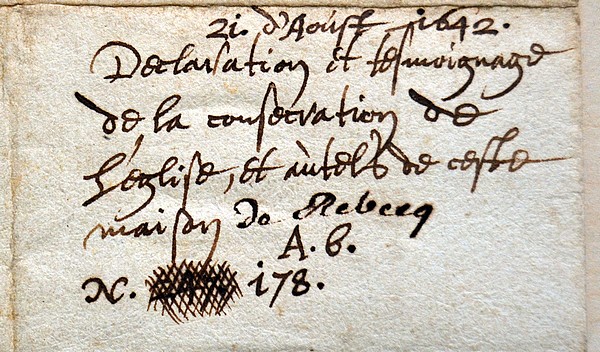 21. d'Aoust, 1642.
Declaration et tesmoignage
de la consecration de
l'église, et autels de ceste
maison de Rebecq
A. b.
N. 178.